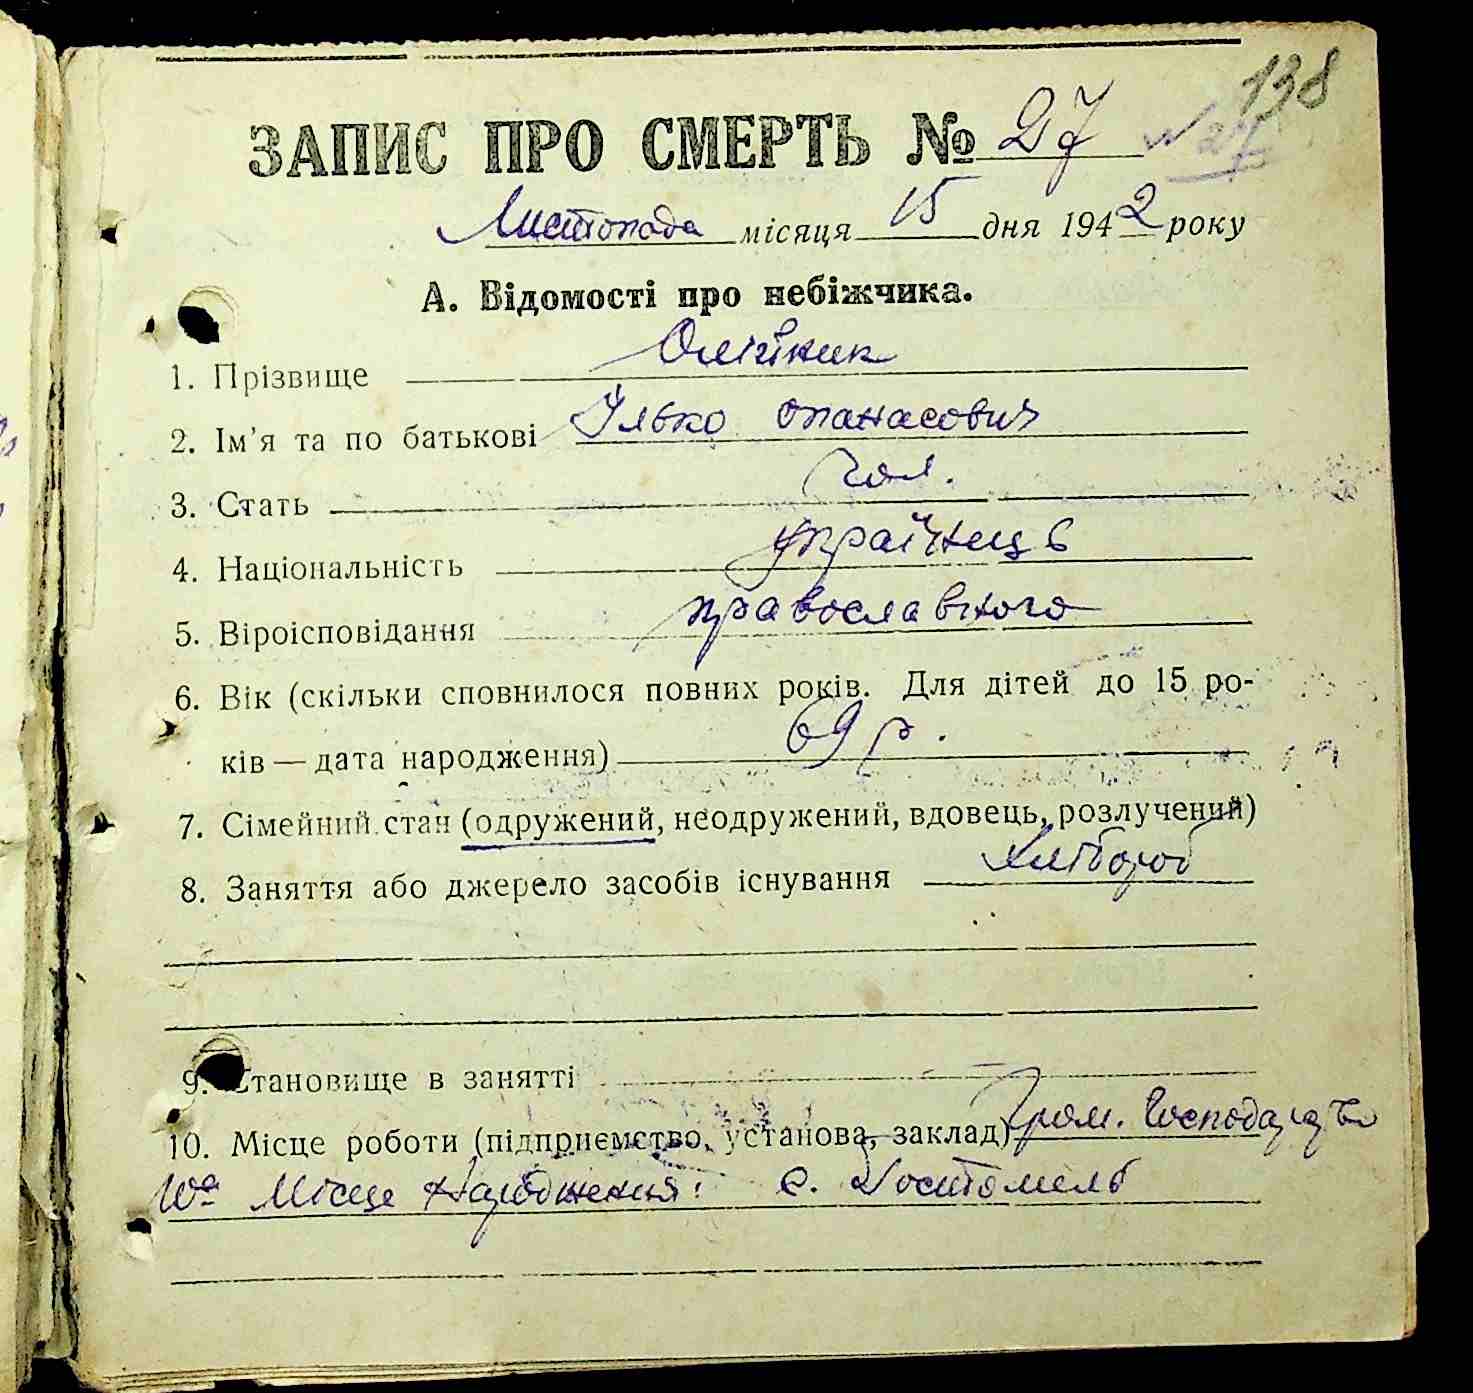 138
ЗАПИС ПРО СМЕРТЬ № 27 № 27
Листопада місяця 15 дня 1942 року
А. Відомості про небіжчика.
1. Прізвище Олійник
2. Ім'я та по батькові Ілько Опанасович
3. Стать чол.
4. Національність українець
5. Віроісповідання православного
6. Вік (скільки сповнилося повних років. Для дітей до 15 ро-
ків — дата народження) 69 р.
7. Сімейний стан (одружений, неодружений, вдовець, розлучений)
8. Заняття або джерело засобів існування хлібороб
9. Становище в занятті
10. Місце роботи (підприємство, установа, заклад) Гром. Господарство
10а Місце народження: с. Гостомель